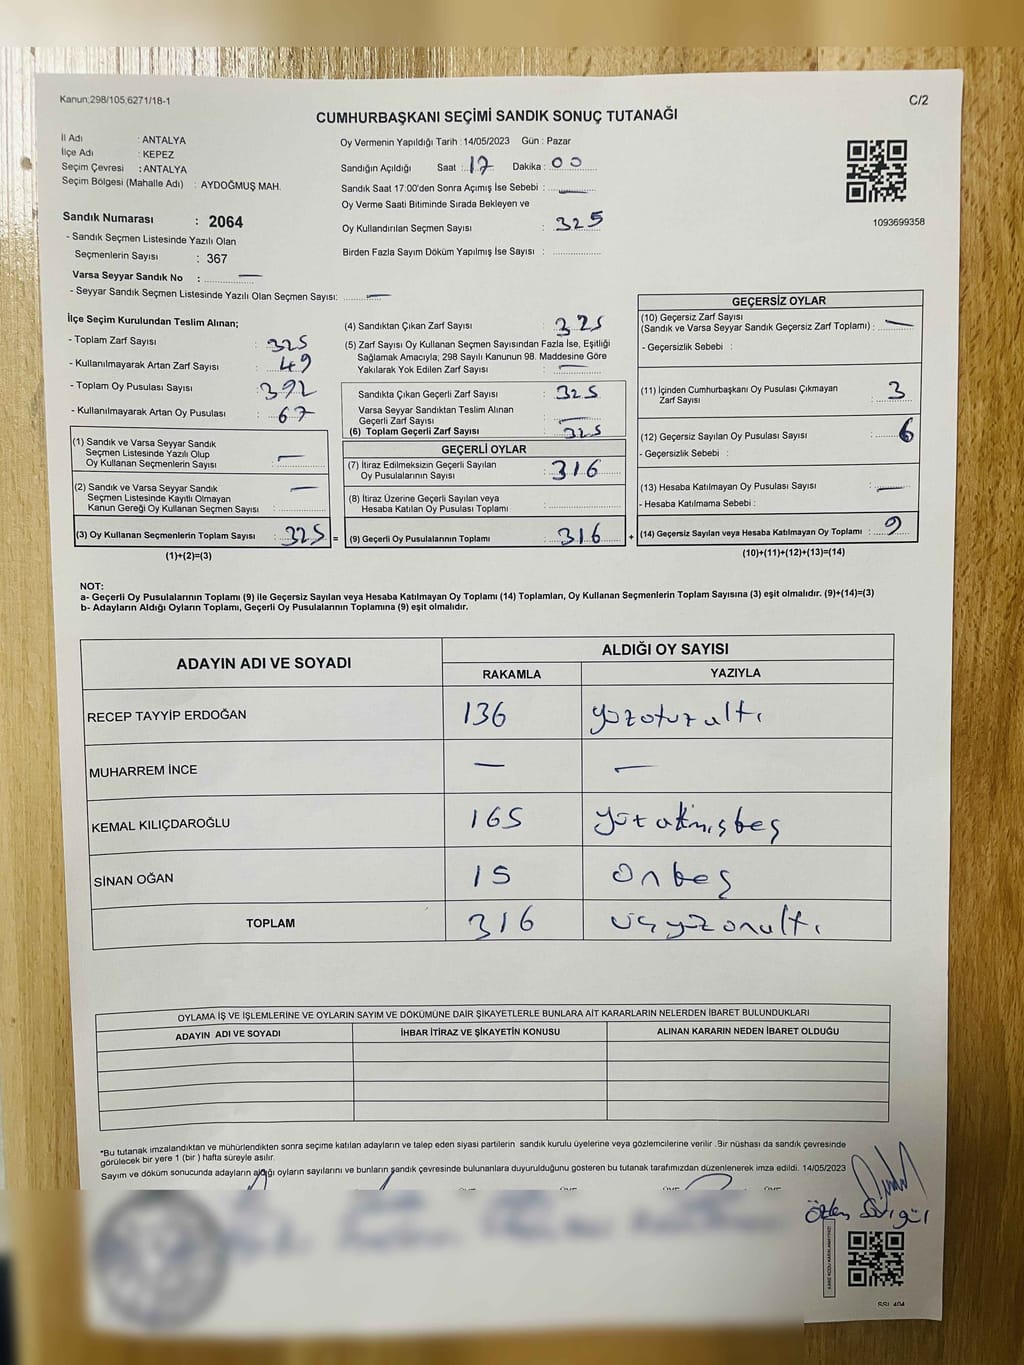 Kanun;298/105;6271/18-1
C/2
CUMHURBAŞKANI SEÇİMİ SANDIK SONUÇ TUTANAĞI
İl Adı : ANTALYA
İlçe Adı : KEPEZ
Seçim Çevresi : ANTALYA
Seçim Bölgesi (Mahalle Adı) : AYDOĞMUŞ MAH.
Sandık Numarası : 2064
- Sandık Seçmen Listesinde Yazılı Olan
Seçmenlerin Sayısı : 367
Varsa Seyyar Sandık No : —
- Seyyar Sandık Seçmen Listesinde Yazılı Olan Seçmen Sayısı: —
Oy Vermenin Yapıldığı Tarih :14/05/2023 Gün : Pazar
Sandığın Açıldığı Saat : 17 Dakika : 00
Sandık Saat 17:00'den Sonra Açımış İse Sebebi : —
Oy Verme Saati Bitiminde Sırada Bekleyen ve
Oy Kullandırılan Seçmen Sayısı : 325
Birden Fazla Sayım Döküm Yapılmış İse Sayısı :
1093699358
İlçe Seçim Kurulundan Teslim Alınan;
- Toplam Zarf Sayısı : 325
- Kullanılmayarak Artan Zarf Sayısı : 49
- Toplam Oy Pusulası Sayısı : 392
- Kullanılmayarak Artan Oy Pusulası : 67
(1) Sandık ve Varsa Seyyar Sandık
Seçmen Listesinde Yazılı Olup
Oy Kullanan Seçmenlerin Sayısı : —
(2) Sandık ve Varsa Seyyar Sandık
Seçmen Listesinde Kayıtlı Olmayan
Kanun Gereği Oy Kullanan Seçmen Sayısı : —
(3) Oy Kullanan Seçmenlerin Toplam Sayısı : 325 =
(1)+(2)=(3)
(4) Sandıktan Çıkan Zarf Sayısı : 325
(5) Zarf Sayısı Oy Kullanan Seçmen Sayısından Fazla İse, Eşitliği
Sağlamak Amacıyla; 298 Sayılı Kanunun 98. Maddesine Göre
Yakılarak Yok Edilen Zarf Sayısı : —
Sandıkta Çıkan Geçerli Zarf Sayısı : 325
Varsa Seyyar Sandıktan Teslim Alınan
Geçerli Zarf Sayısı : —
(6) Toplam Geçerli Zarf Sayısı : 325
GEÇERLİ OYLAR
(7) İtiraz Edilmeksizin Geçerli Sayılan
Oy Pusulalarının Sayısı : 316
(8) İtiraz Üzerine Geçerli Sayılan veya
Hesaba Katılan Oy Pusulaları Toplamı :
(9) Geçerli Oy Pusulalarının Toplamı : 316 +
GEÇERSİZ OYLAR
(10) Geçersiz Zarf Sayısı
(Sandık ve Varsa Seyyar Sandık Geçersiz Zarf Toplamı) : —
- Geçersizlik Sebebi :
(11) İçinden Cumhurbaşkanı Oy Pusulası Çıkmayan
Zarf Sayısı : 3
(12) Geçersiz Sayılan Oy Pusulası Sayısı : 6
- Geçersizlik Sebebi :
(13) Hesaba Katılmayan Oy Pusulası Sayısı : —
- Hesaba Katılmama Sebebi :
(14) Geçersiz Sayılan veya Hesaba Katılmayan Oy Toplamı : 9
(10)+(11)+(12)+(13)=(14)
NOT:
a- Geçerli Oy Pusulalarının Toplamı (9) ile Geçersiz Sayılan veya Hesaba Katılmayan Oy Toplamı (14) Toplamları, Oy Kullanan Seçmenlerin Toplam Sayısına (3) eşit olmalıdır. (9)+(14)=(3)
b- Adayların Aldığı Oyların Toplamı, Geçerli Oy Pusulalarının Toplamına (9) eşit olmalıdır.
ADAYIN ADI VE SOYADI ALDIĞI OY SAYISI
RAKAMLA YAZIYLA
RECEP TAYYİP ERDOĞAN 136 yüzotuzaltı
MUHARREM İNCE — —
KEMAL KILIÇDAROĞLU 165 yüzatmışbeş
SİNAN OĞAN 15 Onbeş
TOPLAM 316 üçyüzonaltı
OYLAMA İŞ VE İŞLEMLERİNE VE OYLARIN SAYIM VE DÖKÜMÜNE DAİR ŞİKAYETLERLE BUNLARA AİT KARARLARIN NELERDEN İBARET BULUNDUKLARI
ADAYIN ADI VE SOYADI İHBAR İTİRAZ VE ŞİKAYETİN KONUSU ALINAN KARARIN NEDEN İBARET OLDUĞU
*Bu tutanak imzalandıktan ve mühürlendikten sonra seçime katılan adayların ve talep eden siyasi partilerin sandık kurulu üyelerine veya gözlemcilerine verilir .Bir nüshası da sandık çevresinde
görülecek bir yere 1 (bir ) hafta süreyle asılır.
Sayım ve döküm sonucunda adayların aldığı oyların sayılarını ve bunların sandık çevresinde bulunanlara duyurulduğunu gösteren bu tutanak tarafımızdan düzenlenerek imza edildi. 14/05/2023